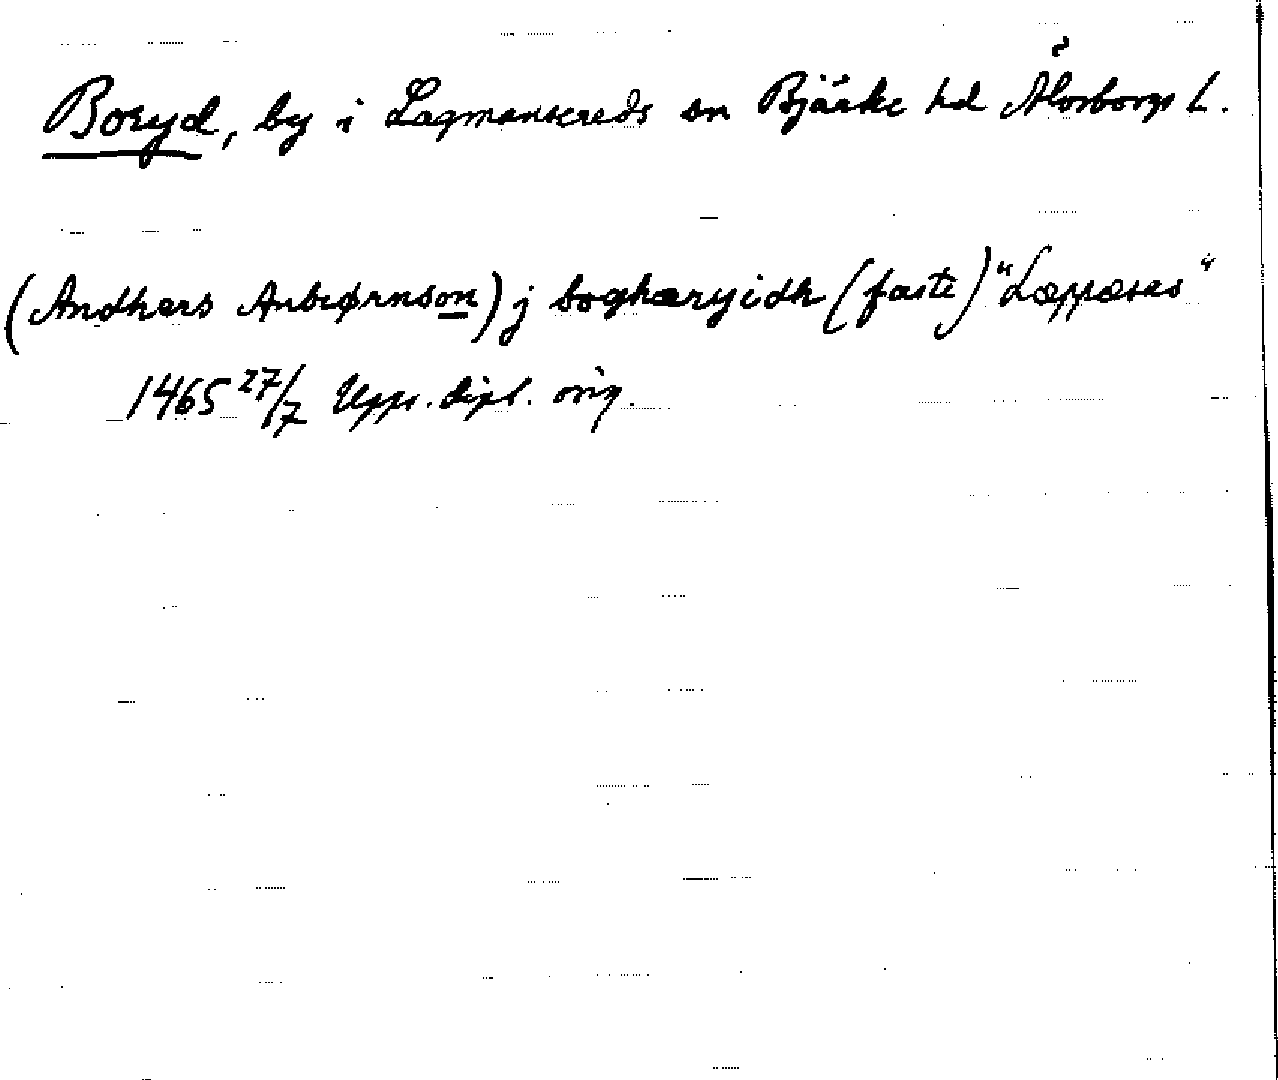 Boryd, by i Lagmansereds sn Bjärke hd Älvsborgs l.
(Andhers Anbiørnson) j boghæryidh (faste) "Læppæsas"
1465 27/7 Upps. dipl. orig.